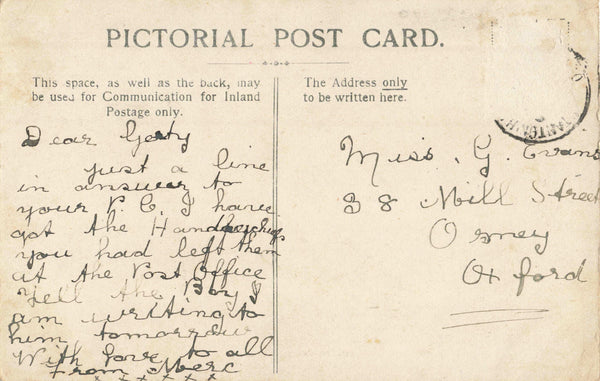 PICTORIAL POST CARD.
This space, as well as the back, may
be used for Communication for Inland
Postage only.
The Address only
to be written here.
Dear Gerty
just a line
in answer to
your P.C. I have
got the Handkerchiefs
you had left them
at the Post Office
Tell the Boy I
am writing to
him tomorrow
With love to all
From Merc
x x x x x
Miss. G. Evans
38 Mill Street
Osney
Oxford